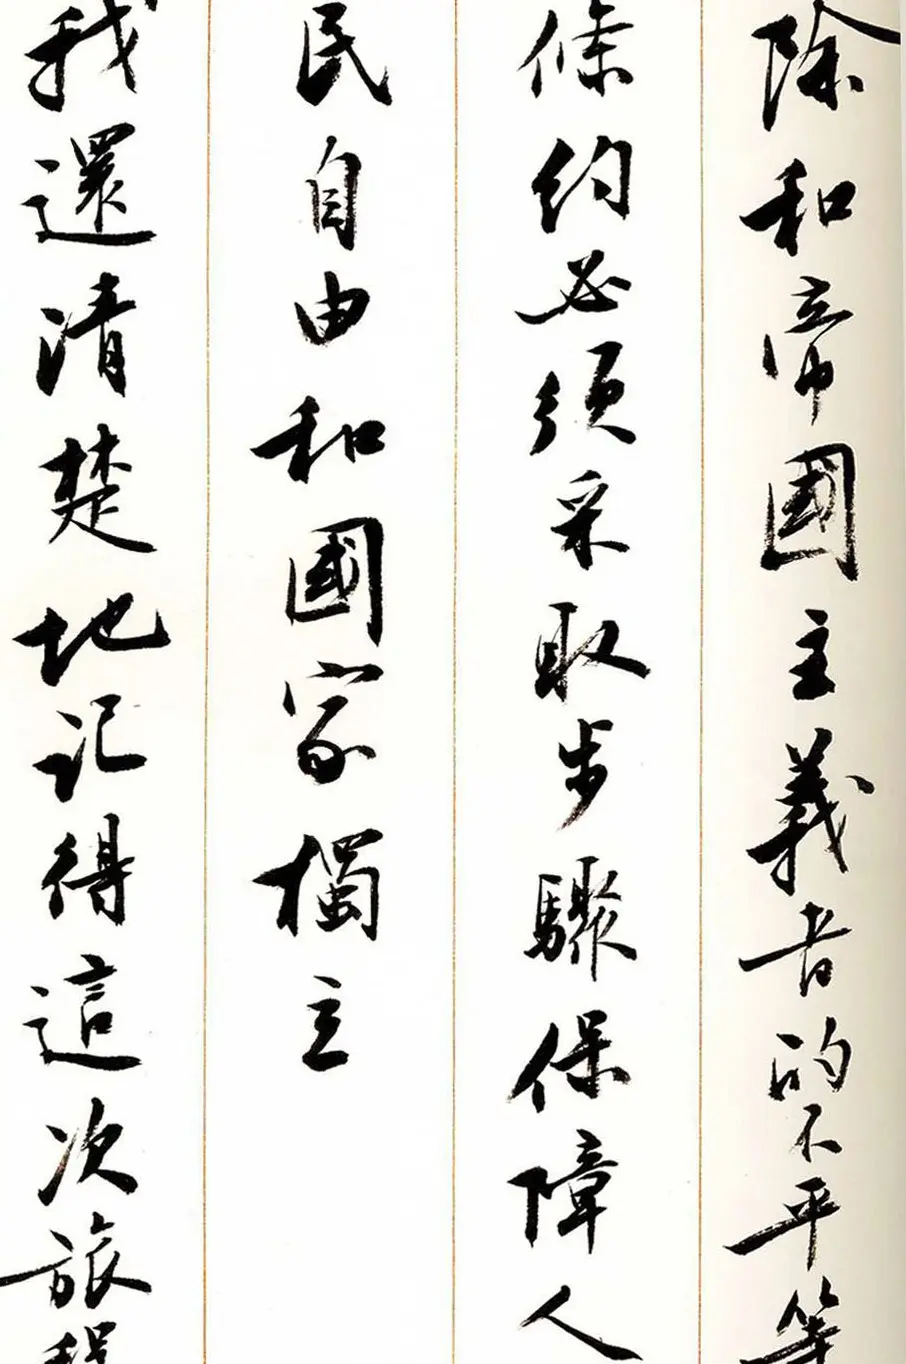 除和帝國主義者的不平等
條約必须采取步驟保障人
民自由和國家獨立
我還清楚地记得這次旅程